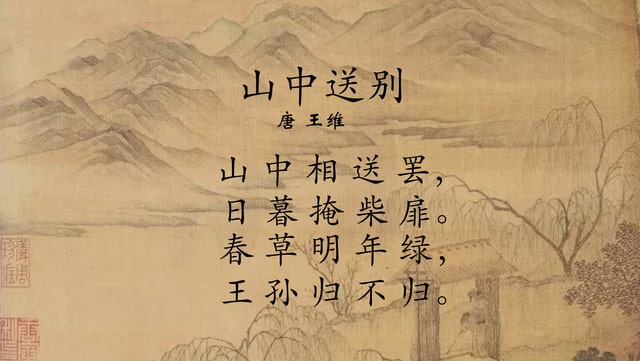 山中送别
唐 王维
山中相送罢，
日暮掩柴扉。
春草明年绿，
王孙归不归。